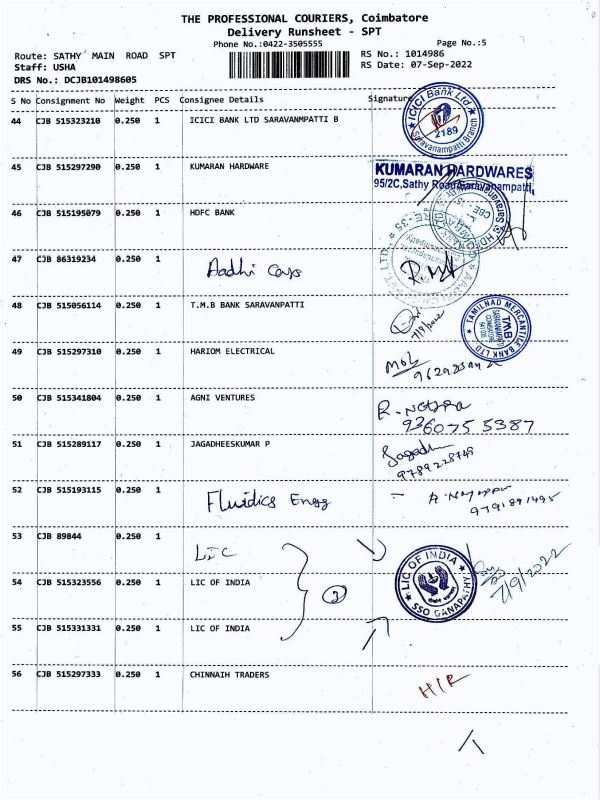 THE PROFESSIONAL COURIERS, Coimbatore
Delivery Runsheet - SPT
Phone No.:0422-3505555 Page No.:5
Route: SATHY MAIN ROAD SPT RS No.: 1014986
Staff: USHA RS Date: 07-Sep-2022
DRS No.: DCJB101498605
S No Consignment No Weight PCS Consignee Details Signature
44 CJB 515323210 0.250 1 ICICI BANK LTD SARAVANMPATTI B
ICICI Bank Ltd. Saravanampatti Branch 2189
45 CJB 515297290 0.250 1 KUMARAN HARDWARE
KUMARAN HARDWARES
95/2C, Sathy Road, Saravanampatti,
46 CJB 515195079 0.250 1 HDFC BANK
47 CJB 86319234 0.250 1 Aadhi Cays
48 CJB 515056114 0.250 1 T.M.B BANK SARAVANPATTI
TAMILNAD MERCANTILE BANK LTD
TMB
7/9/2022
49 CJB 515297310 0.250 1 HARIOM ELECTRICAL
50 CJB 515341804 0.250 1 AGNI VENTURES
936075 5387
51 CJB 515289117 0.250 1 JAGADHEESKUMAR P
Jagadh
9789228749
52 CJB 515193115 0.250 1 Fluidics Engg
9791891495
53 CJB 89844 0.250 1 LIC
54 CJB 515323556 0.250 1 LIC OF INDIA
3
LIC OF INDIA
SSO GANAPATHY
7/9/2022
55 CJB 515331331 0.250 1 LIC OF INDIA
56 CJB 515297333 0.250 1 CHINNAIH TRADERS
H/R